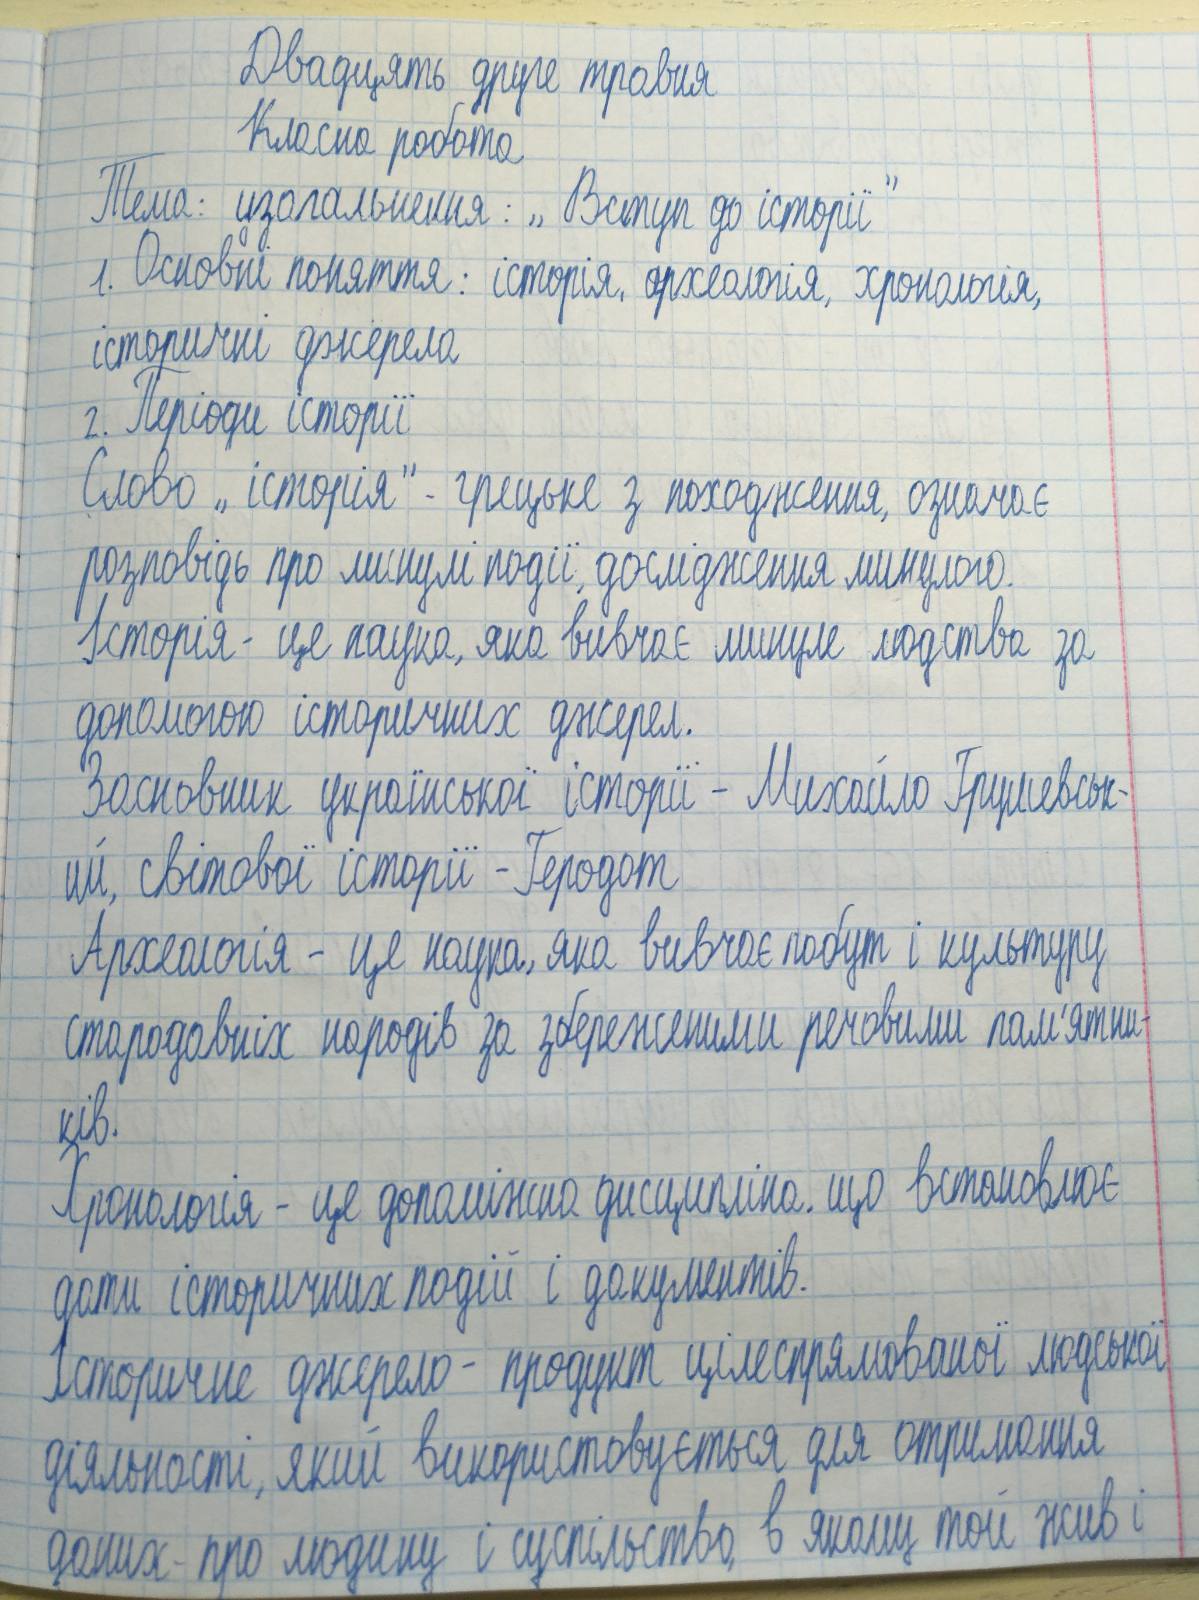 Двадцять друге травня
Класна робота
Тема: узагальнення: „Вступ до історії"
1. Основні поняття: історія, археологія, хронологія,
історичні джерела
2. Періоди історії
Слово „історія" - грецьке з походження, означає
розповідь про минулі події, дослідження минулого.
Історія - це наука, яка вивчає минуле людства за
допомогою історичних джерел.
Засновник української історії - Михайло Грушевськ-
ий, світової історії - Геродот
Археологія - це наука, яка вивчає побут і культуру
стародавніх народів за збереженими речовими пам'ятни-
ків.
Хронологія - це допоміжна дисципліна. що встановлює
дати історичних подій і документів.
Історичне джерело - продукт цілеспрямованої людської
діяльності, який використовується для отримання
даних - про людину і суспільство, в якому той жив і